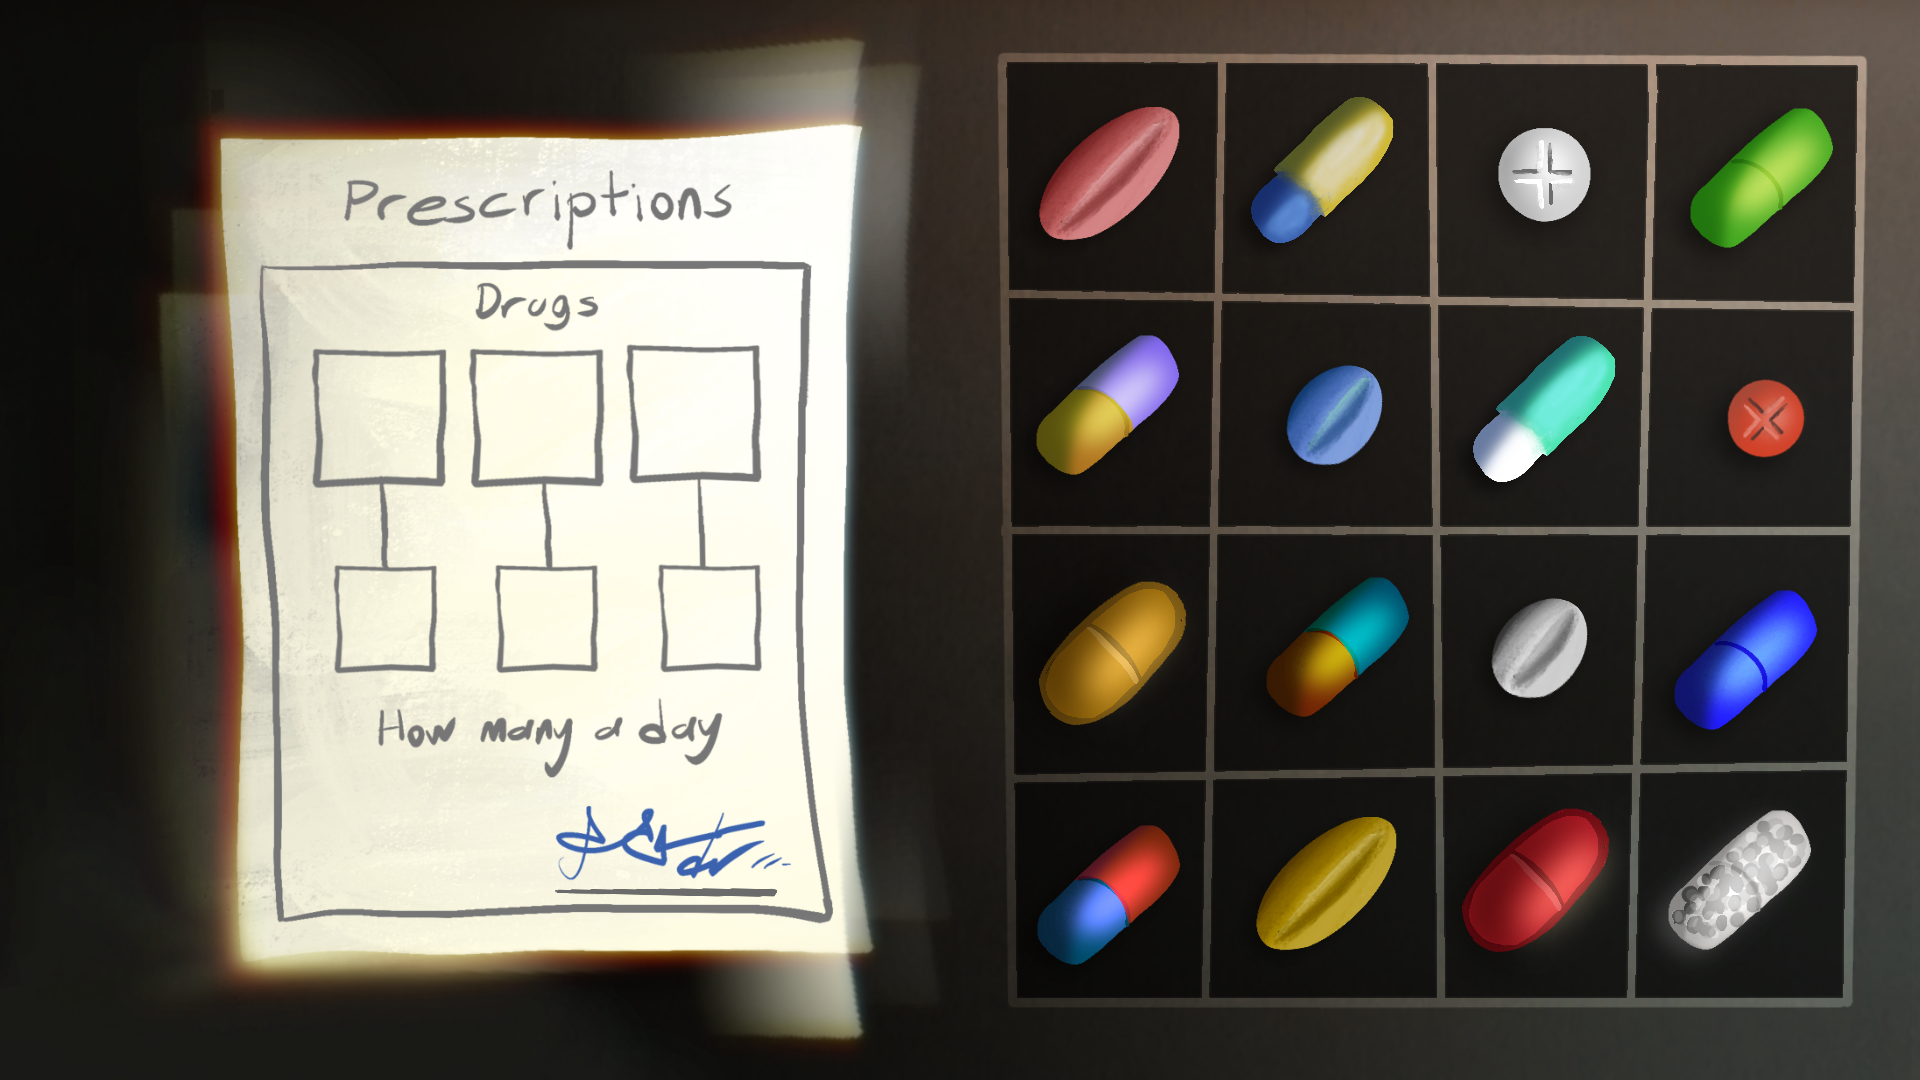 Prescriptions
Drugs
How many a day